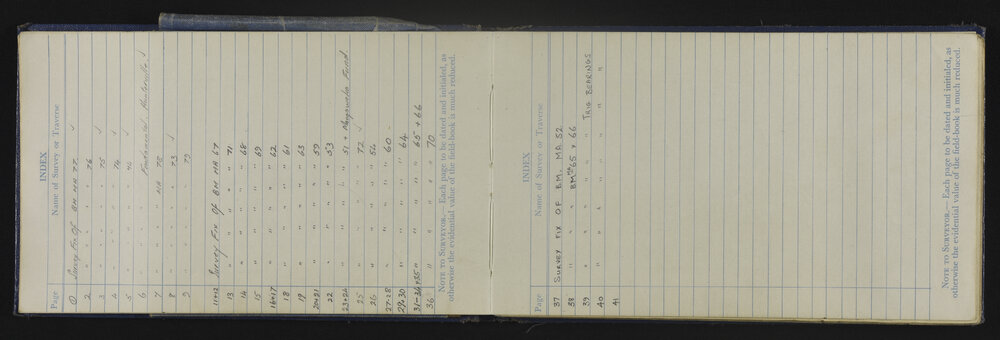 INDEX
Page Name of Survey or Traverse
Survey Fix Of BM MA 77 ✓
2 " " " " 76
3 " " " " 75 ✓
4 " " " " 74 ✓
5 " " " " ✓
6 " " " Fundamental ✓
7 " " " MA 78
8 " " " " 73 ✓
9 " " " " 79
11+12 Survey Fix Of BM MA 67
13 " " " " " 71
14 " " " " 68
15 " " " " 69
16+17 " " " " 62
18 " " " " 61
19 " " " " 63
20+21 " " " " 59
22 " " " " 53
23+24 " " " " 51 + Fund.
25 " " " " 72 ✓
26 " " " " 54
27-28 " " " " 60
29+30 " " " " 64
31-34+35 " " " " 65 + 66
36 " " " " 70
NOTE TO SURVEYOR.— Each page to be dated and initialed, as
otherwise the evidential value of the field-book is much reduced.
INDEX
Page Name of Survey or Traverse
37 SURVEY FIX OF B.M. MA 52.
38 " " " BMMA 65 + 66
39 " " " " TRIG BEARINGS
40 " " " " " "
41
NOTE TO SURVEYOR.— Each page to be dated and initialed, as
otherwise the evidential value of the field-book is much reduced.